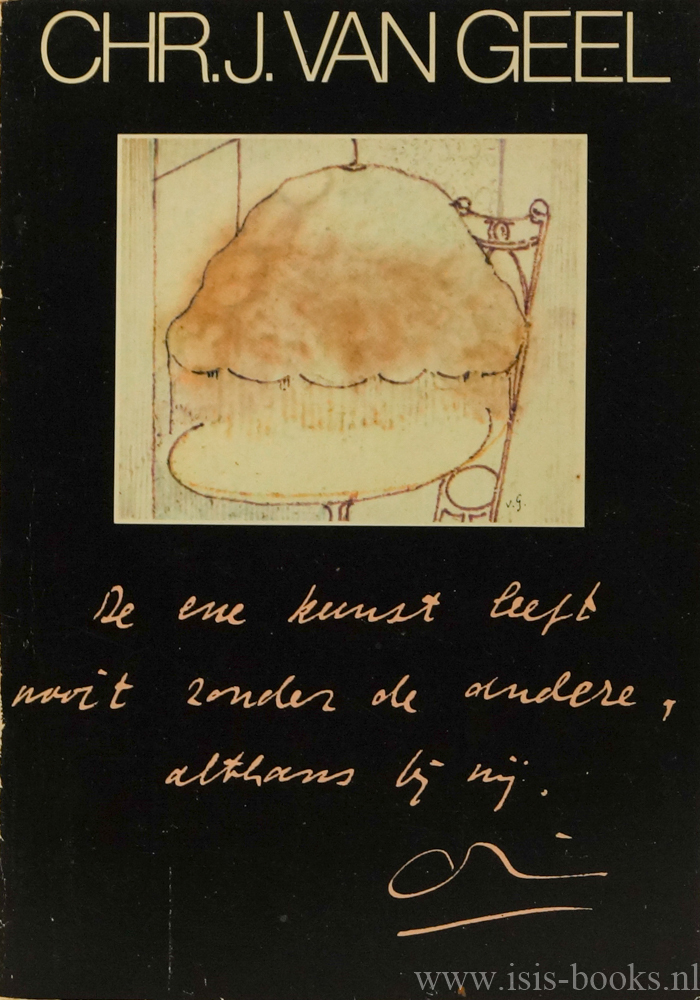 CHR.J. VAN GEEL
v.G.
De ene kunst leeft
nooit zonder de andere,
althans bij mij.
www.isis-books.nl